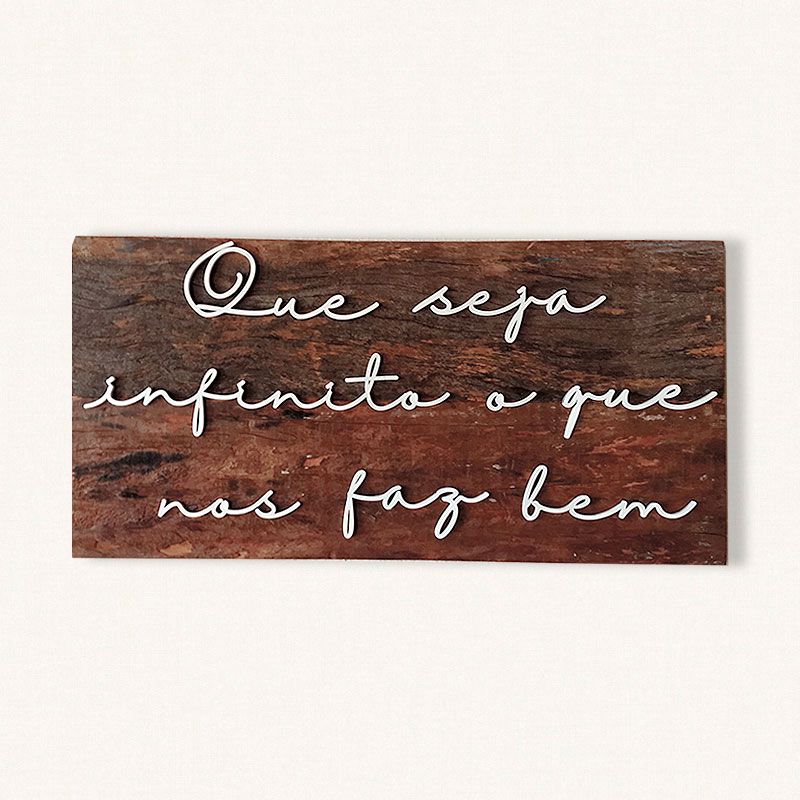 Que seja
infinito o que
nos faz bem